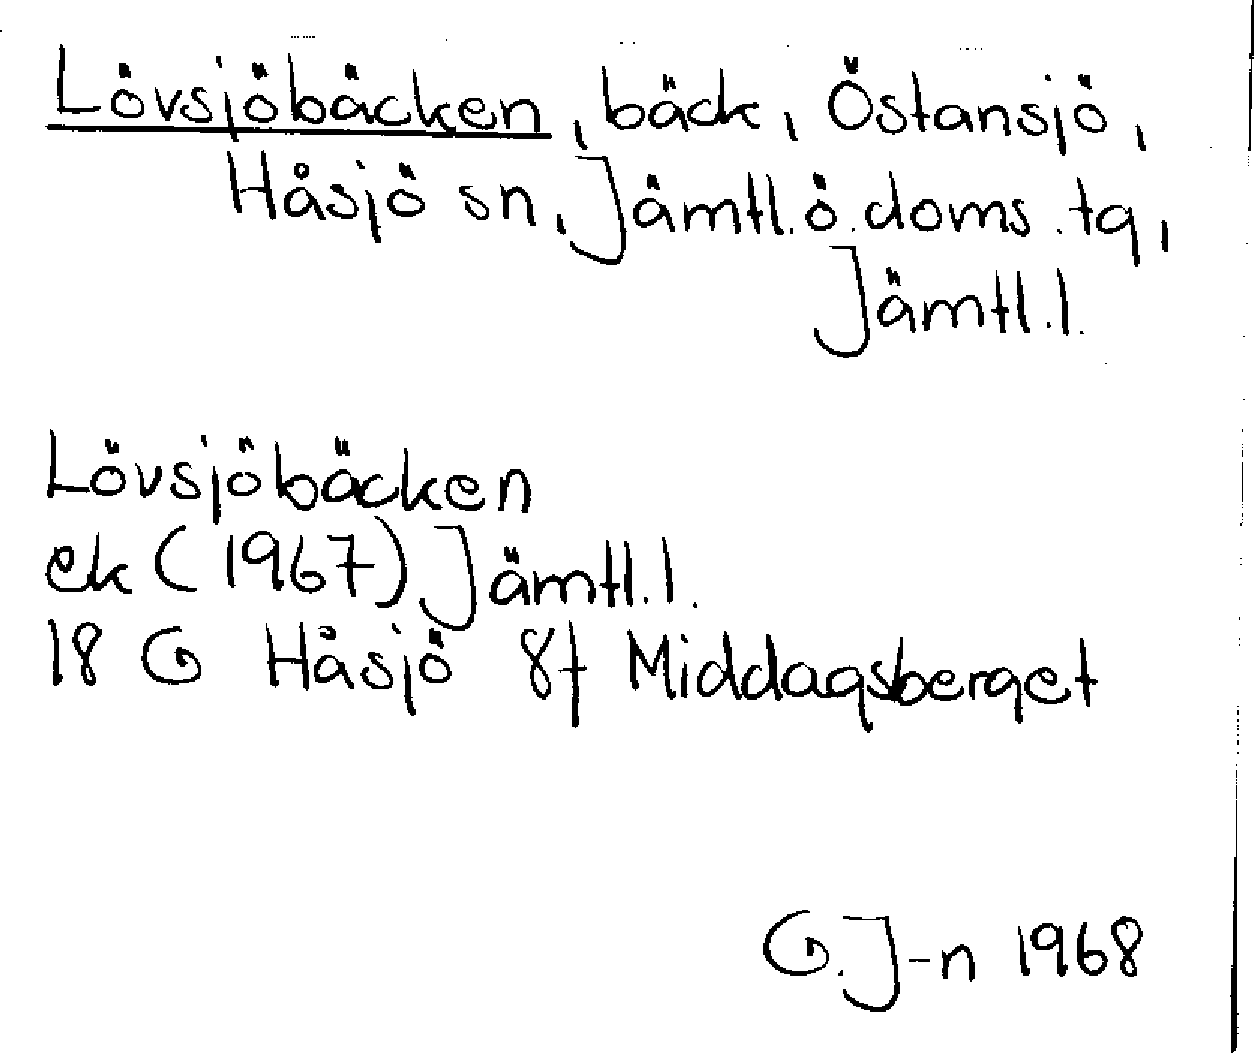 Lövsjöbäcken, bäck, Östansjö,
Håsjö sn, Jämtl.ö.doms.tg,
Jämtl.l.
Lövsjöbäcken
ek (1967) Jämtl.l.
18 G Håsjö 8f Middagsberget
G.J-n 1968